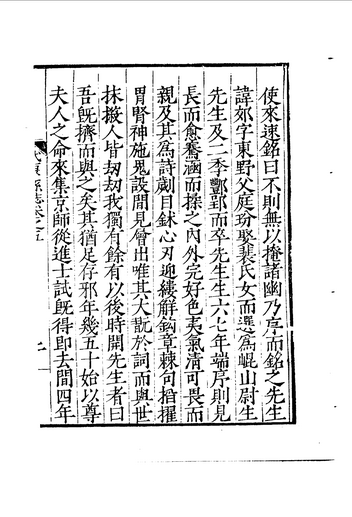 使來速銘曰不則無以掩諸幽乃序而銘之先生
諱郊字東野父庭玢娶裴氏女而選爲崐山尉生
先生及二季酆郢而卒先生生六七年端序則見
長而愈騫涵而揉之內外完好色夷氣清可畏而
親及其爲詩劌目鉥心刃迎縷解鉤章棘句搯擢
胃腎神施鬼設間見曾出唯其大翫於詞而與世
抹摋人皆劫劫我獨有餘有以後時開先生者曰
吾旣擠而與之矣其猶足存邪年幾五十始以尊
夫人之命來集京師從進士試旣得即去間四年